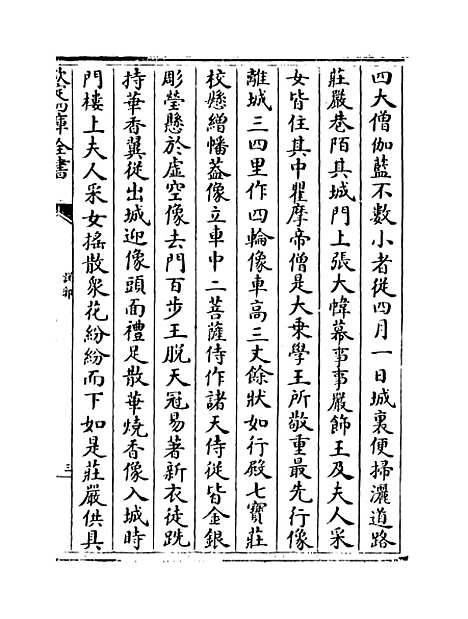 四大僧伽藍不數小者從四月一日城裏便掃灑道路
莊嚴巷陌其城門上張大幃幕事事嚴飾王及夫人采
女皆住其中瞿摩帝僧是大乗學王所敬重最先行像
離城三四里作四輪像車高三丈餘狀如行殿七寶莊
校懸繒幡葢像立車中二菩薩侍作諸天侍從皆金銀
彫瑩懸於虚空像去門百步王脫天冠易著新衣徒跣
持華香翼從出城迎像頭面禮足散華燒香像入城時
門樓上夫人采女搖散衆花紛紛而下如是莊嚴供具
欽定四庫全書
三